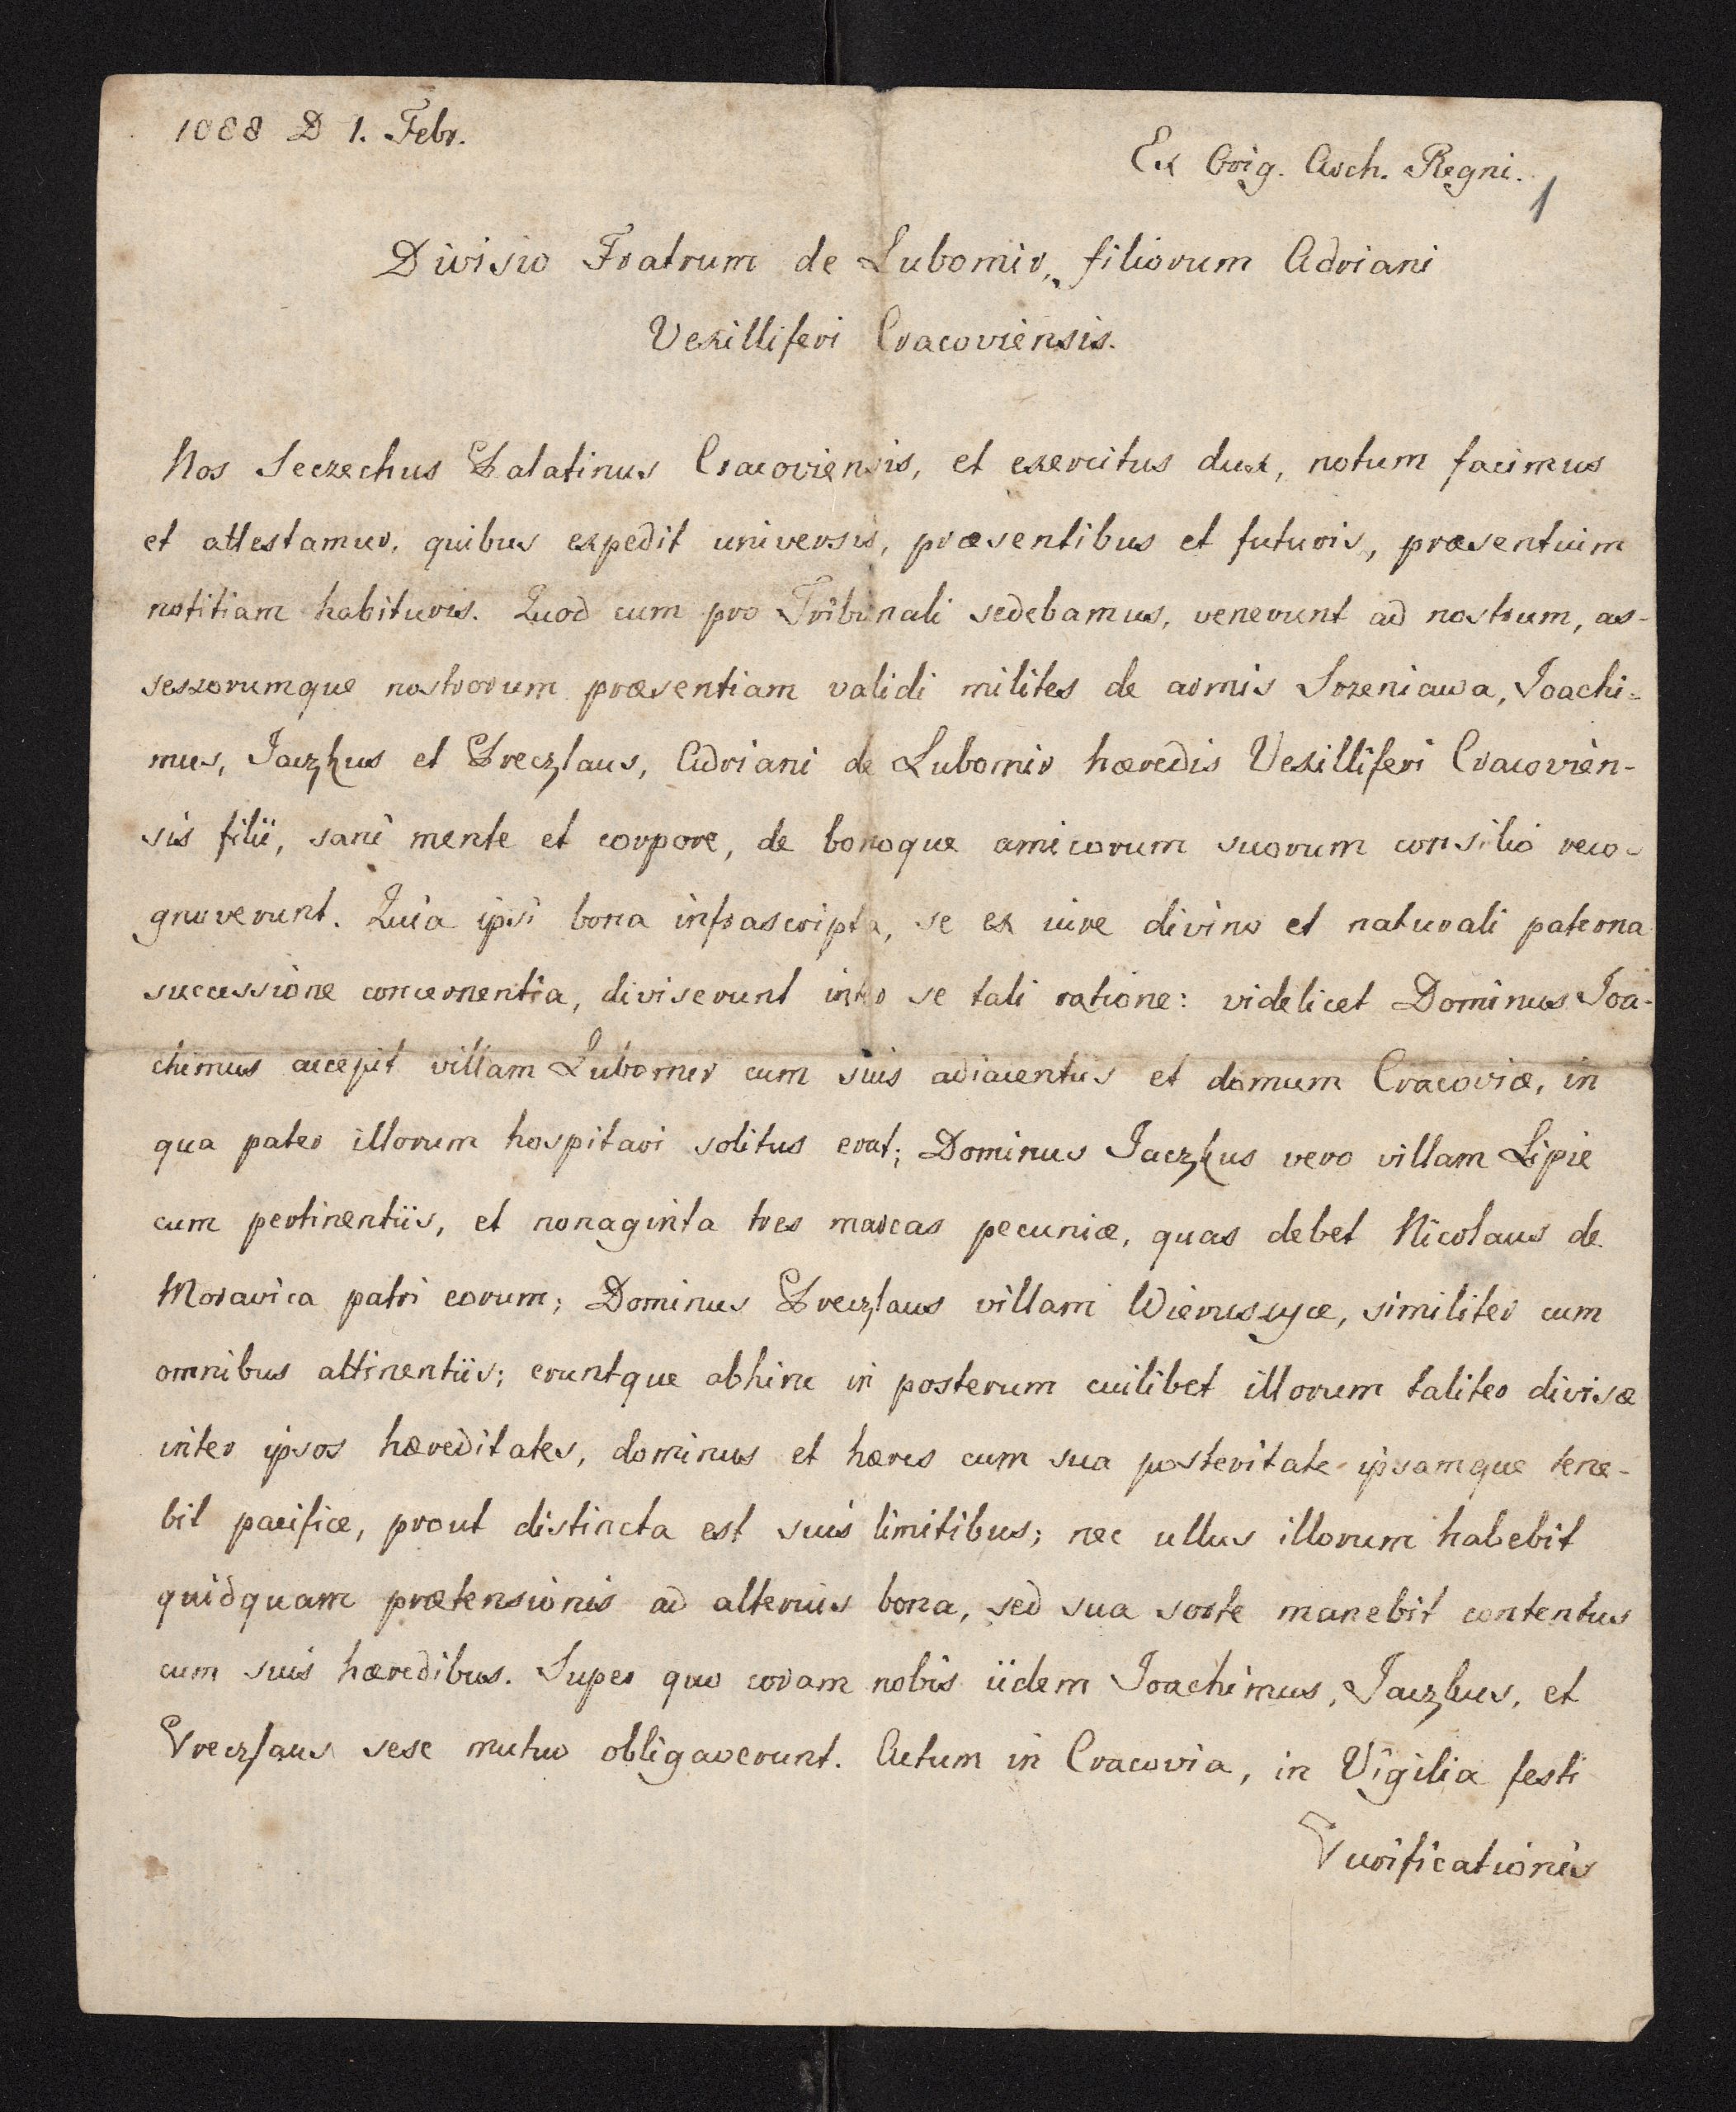 1088 D 1. Febr.
Ex Orig. Arch. Regni.
1
Divisio Fratrum de Lubomir, filiorum Adriani
Vexilliferi Cracoviensis.
Nos Seczechus Palatinus Cracoviensis, et exercitus dux, notum facimus
et attestamur, quibus expedit universis, præsentibus et futuris, præsentium
notitiam habituris. Quod cum pro Tribunali sedebamus, venerunt ad nostrum, as-
sessorumque nostrorum præsentiam validi milites de armis Srzeniawa, Joachi=
mus, Jaczkus et Preczlaus, Adriani de Lubomir hæredis Vexilliferi Cracovien-
sis filii, sani mente et corpore, de bonoque amicorum suorum consilio reco-
gnoverunt. Quia ipsi bona infrascripta, se ex iure divino et naturali paterna
successione concernentia, diviserunt inter se tali ratione: videlicet Dominus Joa-
chimus accepit villam Lubomir cum suis adiacentiis et domum Cracoviæ, in
qua pater illorum hospitari solitus erat; Dominus Jaczkus vero villam Lipie
cum pertinentiis, et nonaginta tres marcas pecuniæ, quas debet Nicolaus de
Moravica patri eorum; Dominus Preczlaus villam Wieruszyce, similiter cum
omnibus attinentiis; eruntque abhinc in posterum cuilibet illorum taliter divisæ
inter ipsos hæreditates, dominus et hæres cum sua posteritate ipsamque tene-
bit pacifice, prout distincta est suis limitibus; nec ullus illorum habebit
quidquam prætensionis ad alterius bona, sed sua sorte manebit contentus
cum suis hæredibus. Super quo coram nobis iidem Joachimus, Jaczkus, et
Preczlaus sese mutuo obligaverunt. Actum in Cracovia, in Vigilia festi
Purificationis